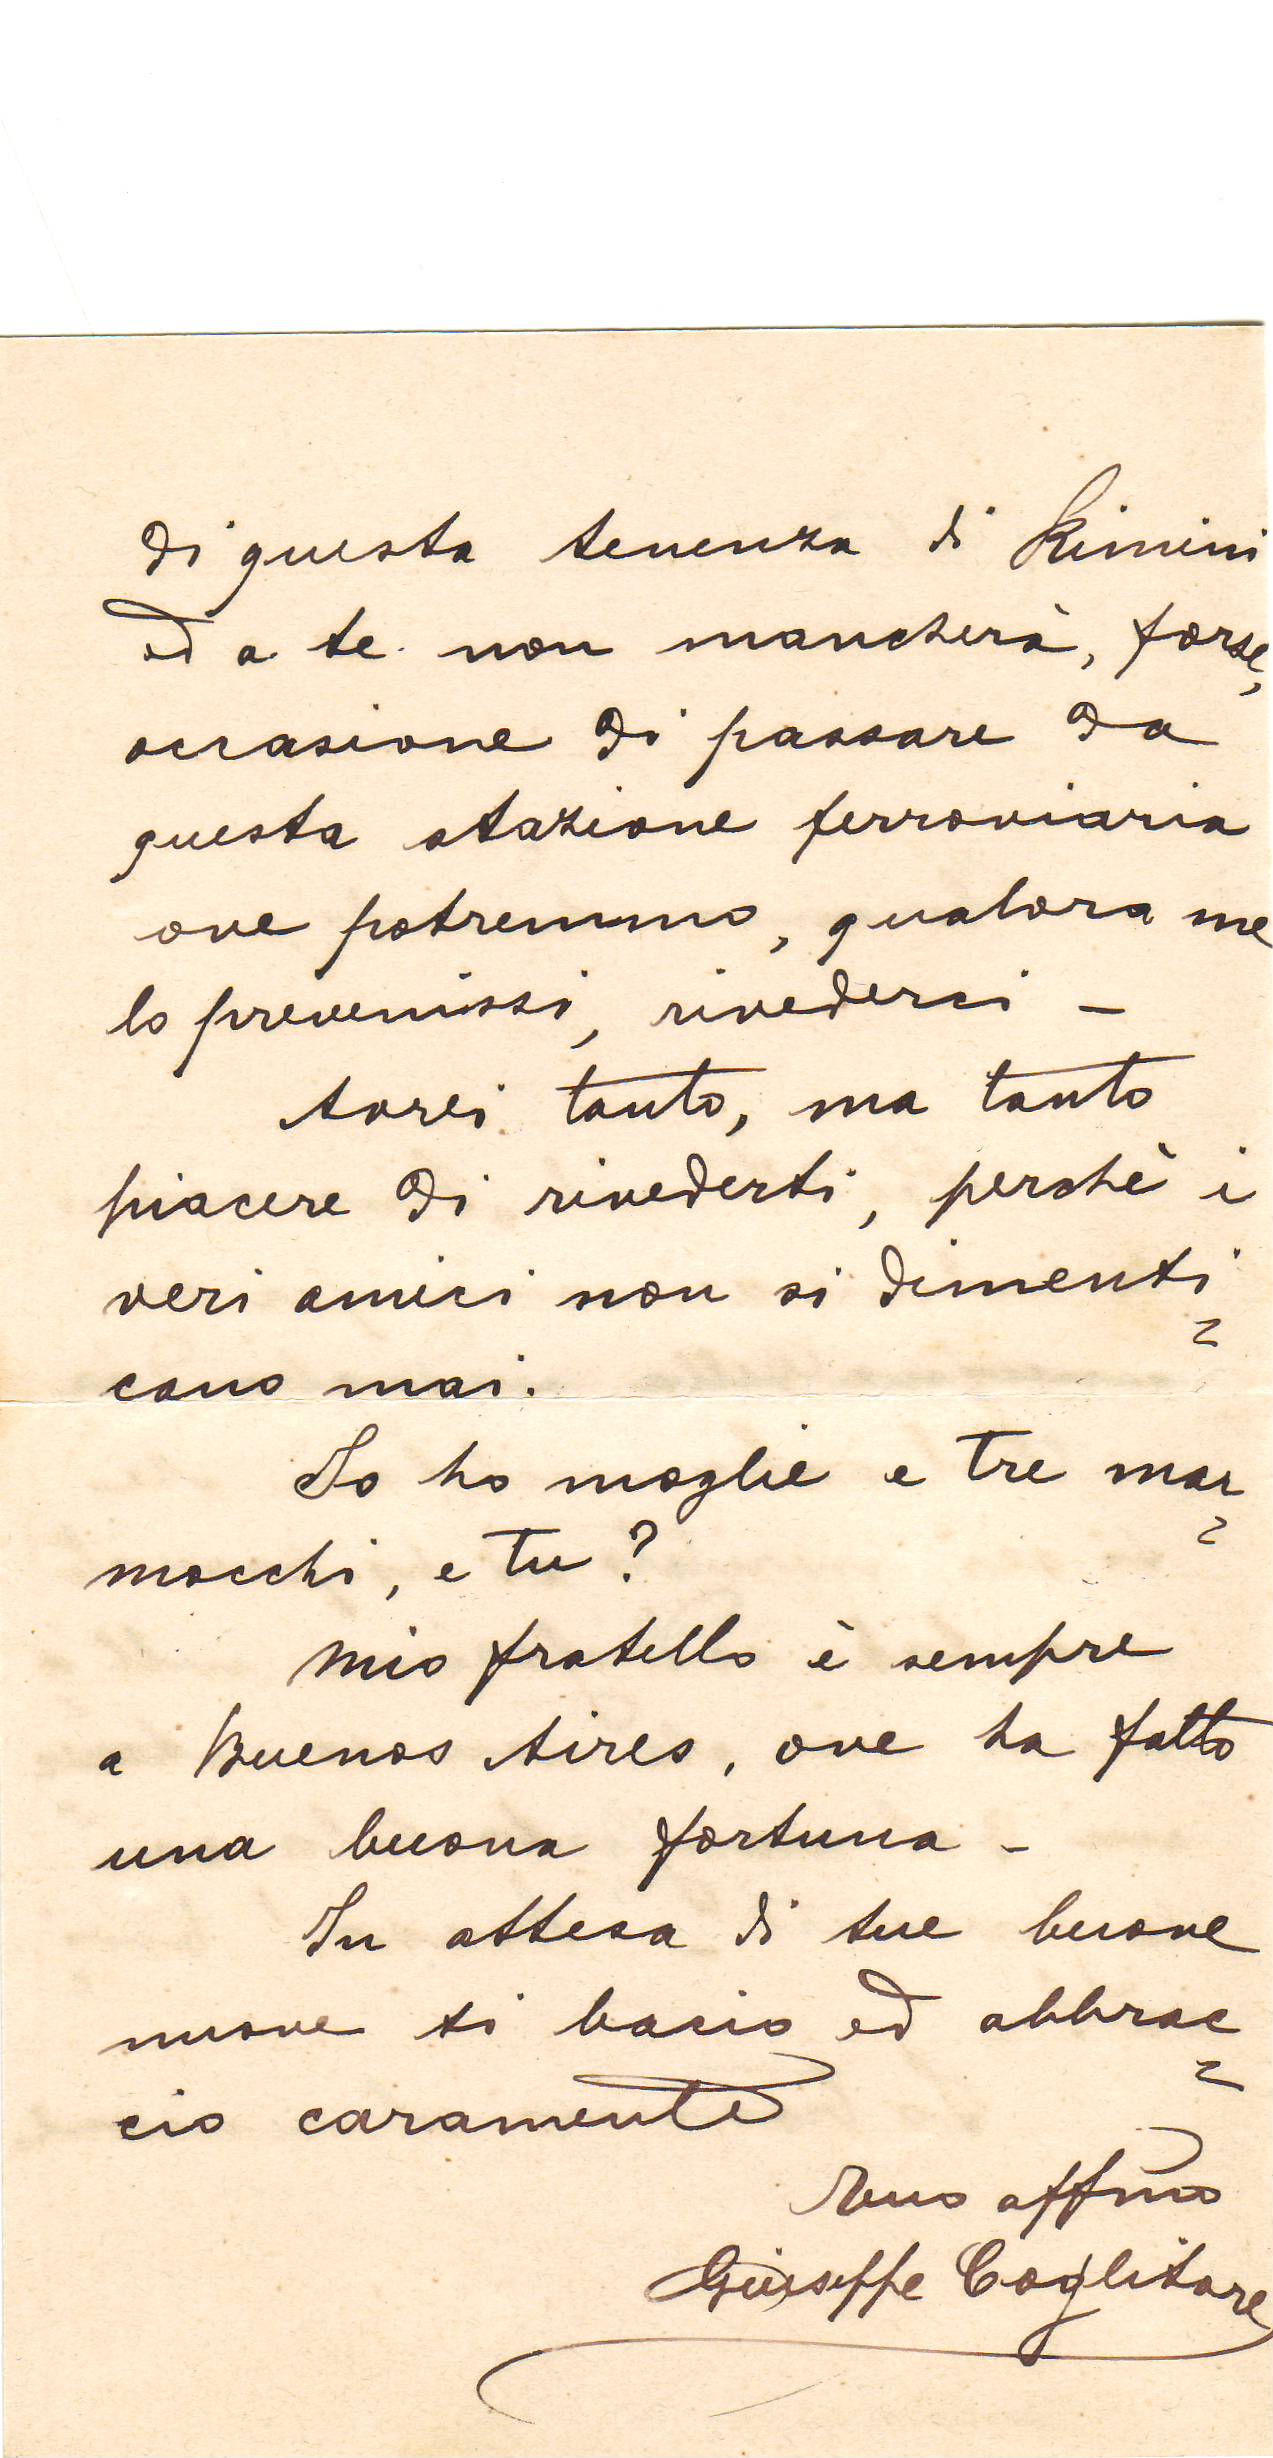 di questa tenenza di Rimini
ed a te non mancherà, forse,
occasione di passare da
questa stazione ferroviaria
ove potremmo, qualora me
lo prevenissi, rivederci -
Avrei tanto, ma tanto
piacere di rivederti, perchè i
veri amici non si dimenti=
cano mai.
Io ho moglie e tre mar=
mocchi, e tu?
Mio fratello è sempre
a Buenos Aires, ove ha fatto
una buona fortuna -
In attesa di tue buone
nuove ti bacio ed abbrac=
cio caramente
Tuo affmo
Giuseppe Coglitore